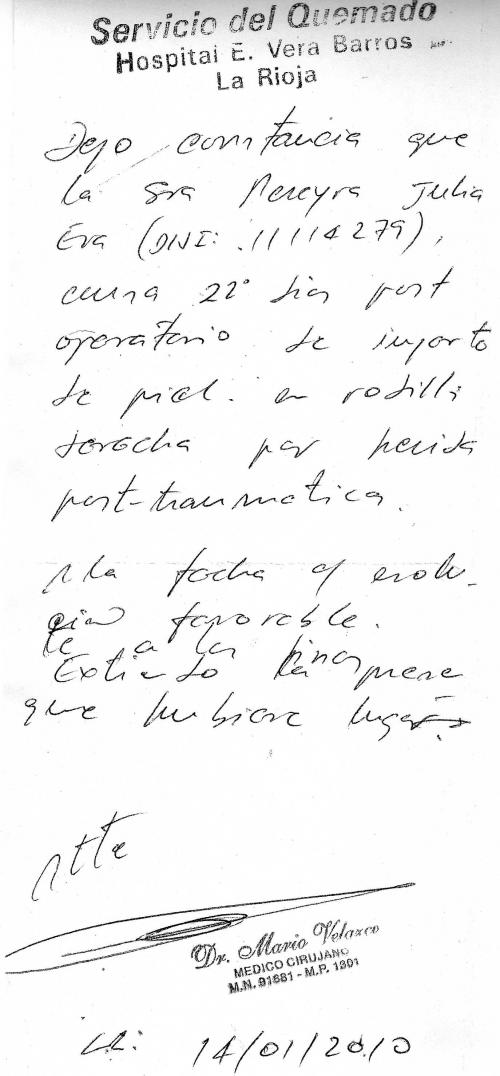 Servicio del Quemado
Hospital E. Vera Barros
La Rioja
Dejo constancia que
la Sra Pereyra Julia
Eva (DNI: 11114279),
cursa 22° dia post
operatorio de injerto
de piel. en rodilla
derecha por herida
post-traumatica.
A la fecha c/ evolu-
cion favorable.
te a los fines
Extiendo la prese
que hubiere lugar.
Atte
Dr. Mario Velazco
MEDICO CIRUJANO
M.N. 91881 - M.P. 1301
LR: 14/01/2010